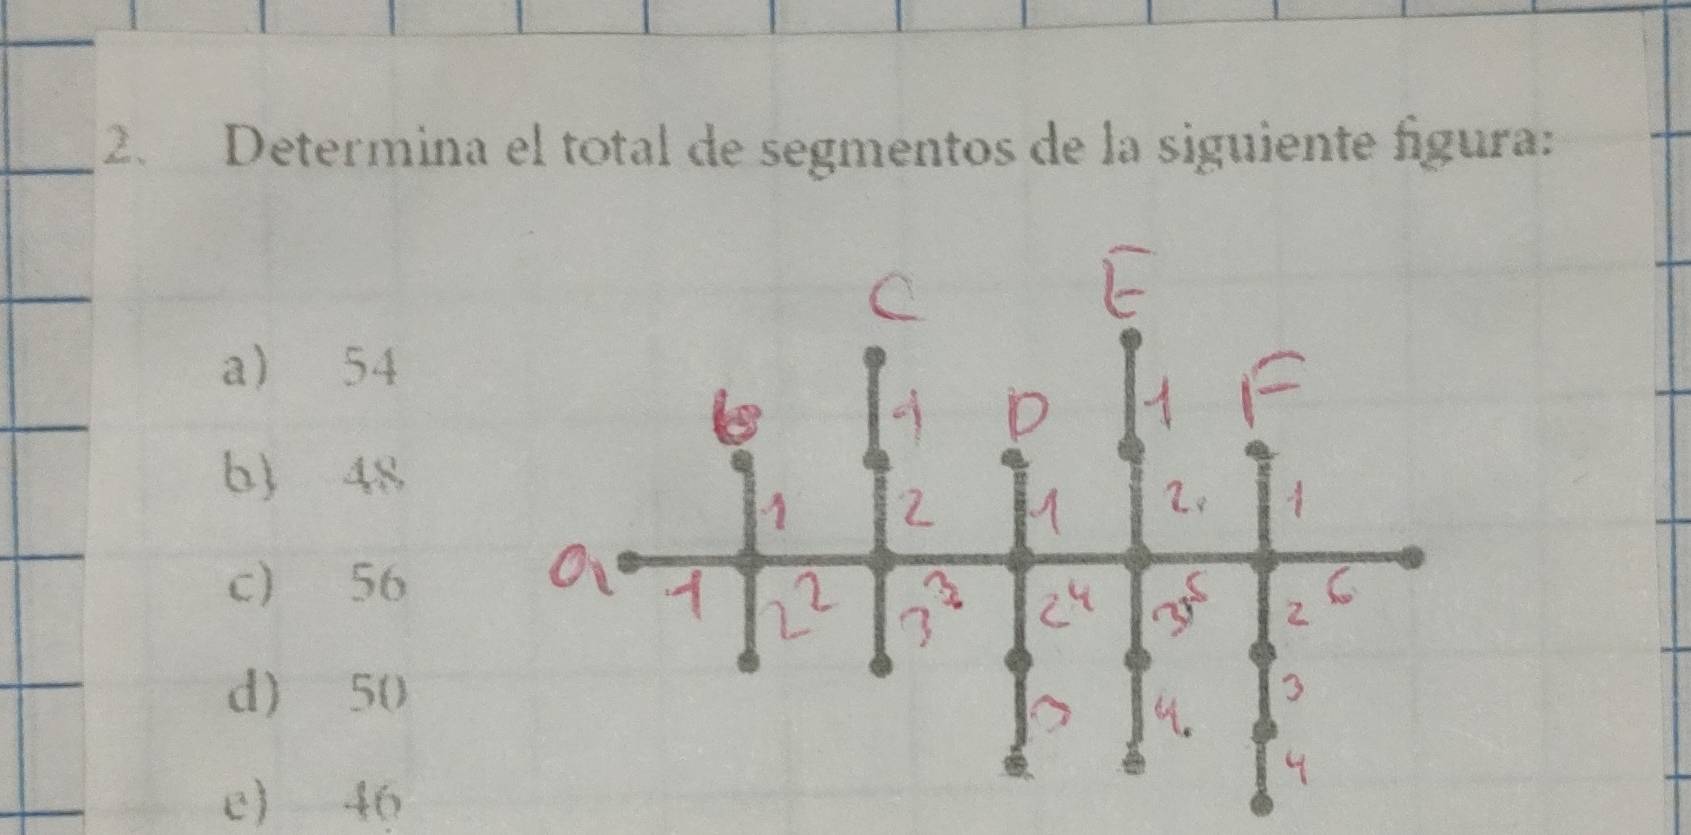 2. Determina el total de segmentos de la siguiente figura:
E
C
a) 54
F
B D 1
1
b) 48
1 2 1 2. 1
a
1 2 2 3 3 2 4 3 5 2 6
c) 56
d) 50
3 4. 3
4
e) 46